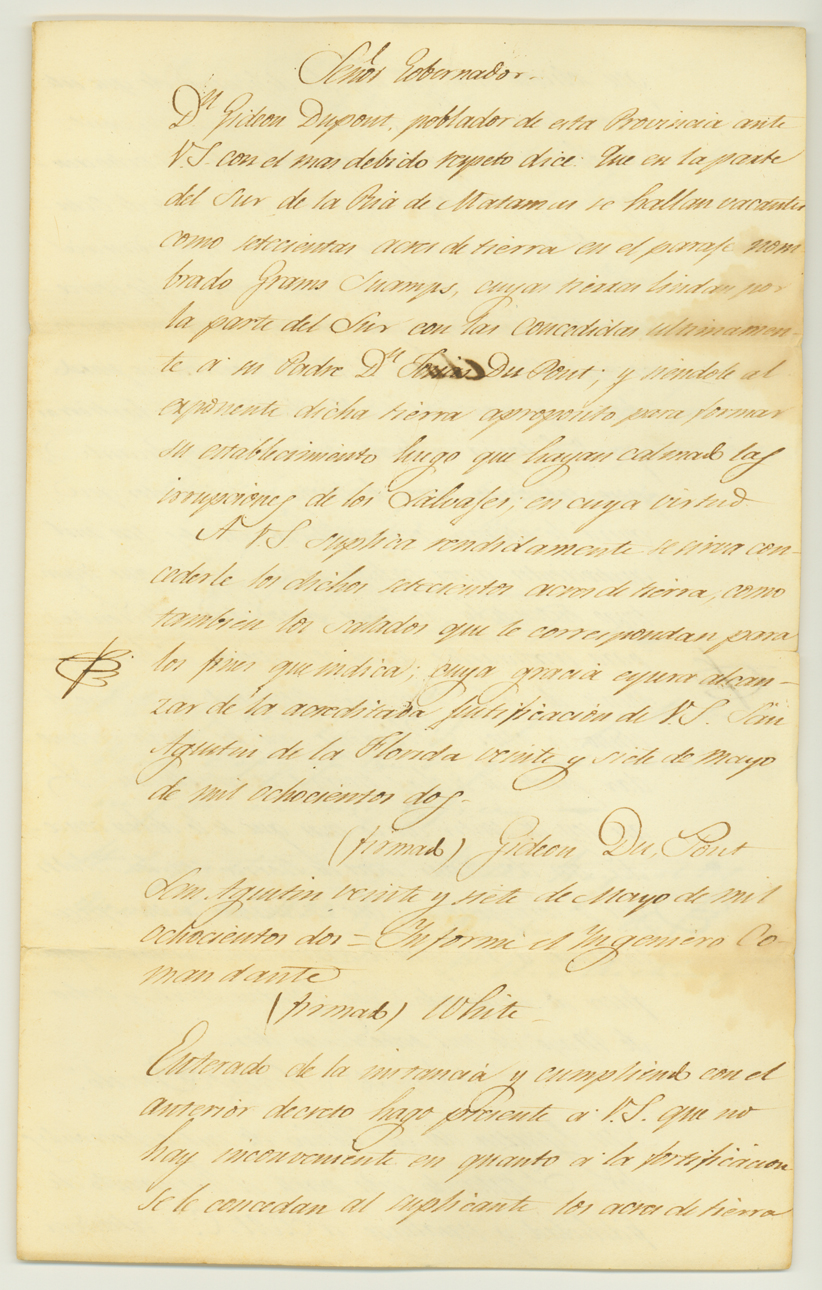 Señor Gobernador.
Dn Gideon Dupont, poblador de esta Provincia ante
V.S. con el mas debido respeto dice: Que en la parte
del Sur de la Ria de Matanzas se hallan vacantes
como setecientas acres de tierra en el paraje nom
brado Grams Suamps, cuyas tierras lindan por
la parte del Sur con las concedidas ultimamen-
te a su Padre Dn Du Pont; y siendole al
exponente dicha tierra aproposito para formar
su establecimiento luego que hayan calmado las
irrupciones de los Salvajes; en cuya virtud
A V.S. suplica rendidamente se sirva con-
cederle los dichos setecientos acres de tierra, como
tambien los salados que le correspondan para
los fines que indica; cuya gracia espera alcan-
zar de la acreditada justificacion de V.S. San
Agustin de la Florida veinte y siete de Mayo
de mil ochocientos dos.
(firmado) Gideon Du, Pont
San Agustin veinte y siete de Mayo de mil
ochocientos dos = Informe el Ingeniero Co-
mandante
(firmado) White
Enterado de la instancia y cumpliendo con el
anterior decreto hago presente a V.S. que no
hay inconveniente en quanto a la fortificacion
se le concedan al suplicante los acres de tierra